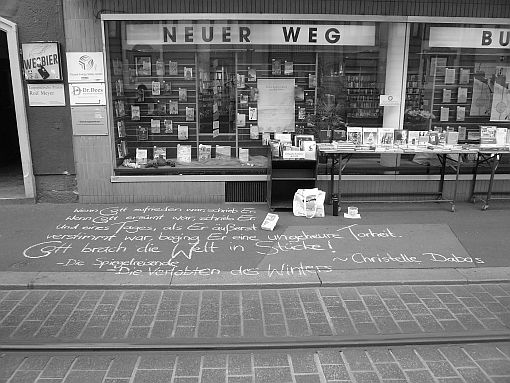 NEUER WEG
BU
WEGBIER
Rolf Meyer
Dr. Dees
Wenn Gott zufrieden war, schrieb Er.
Wenn Gott erzürnt war, schrieb Er.
Und eines Tages, als Er äußerst
verstimmt war, beging Er eine ungeheure Torheit.
Gott brach die Welt in Stücke!
~ Christelle Dabos
-Die Spiegelreisende
-Die Verlobten des Winters